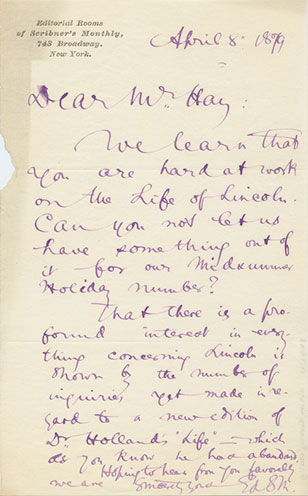 Editorial Rooms
of Scribner's Monthly,
743 Broadway.
New York.
April 8 1879
Dear Mr Hay:
We learn that
you are hard at work
on the Life of Lincoln.
Can you not let us
have something out of
it for our Midsummer
Holiday number?
That there is a pro-
found interest in every-
thing concerning Lincoln is
shown by the number of
inquiries yet made in re-
gard to a new edition of
Dr Holland's "Life" — which
as you know he had abandoned.
Hoping to hear from you favorably
we are sincerely yours Ed S M